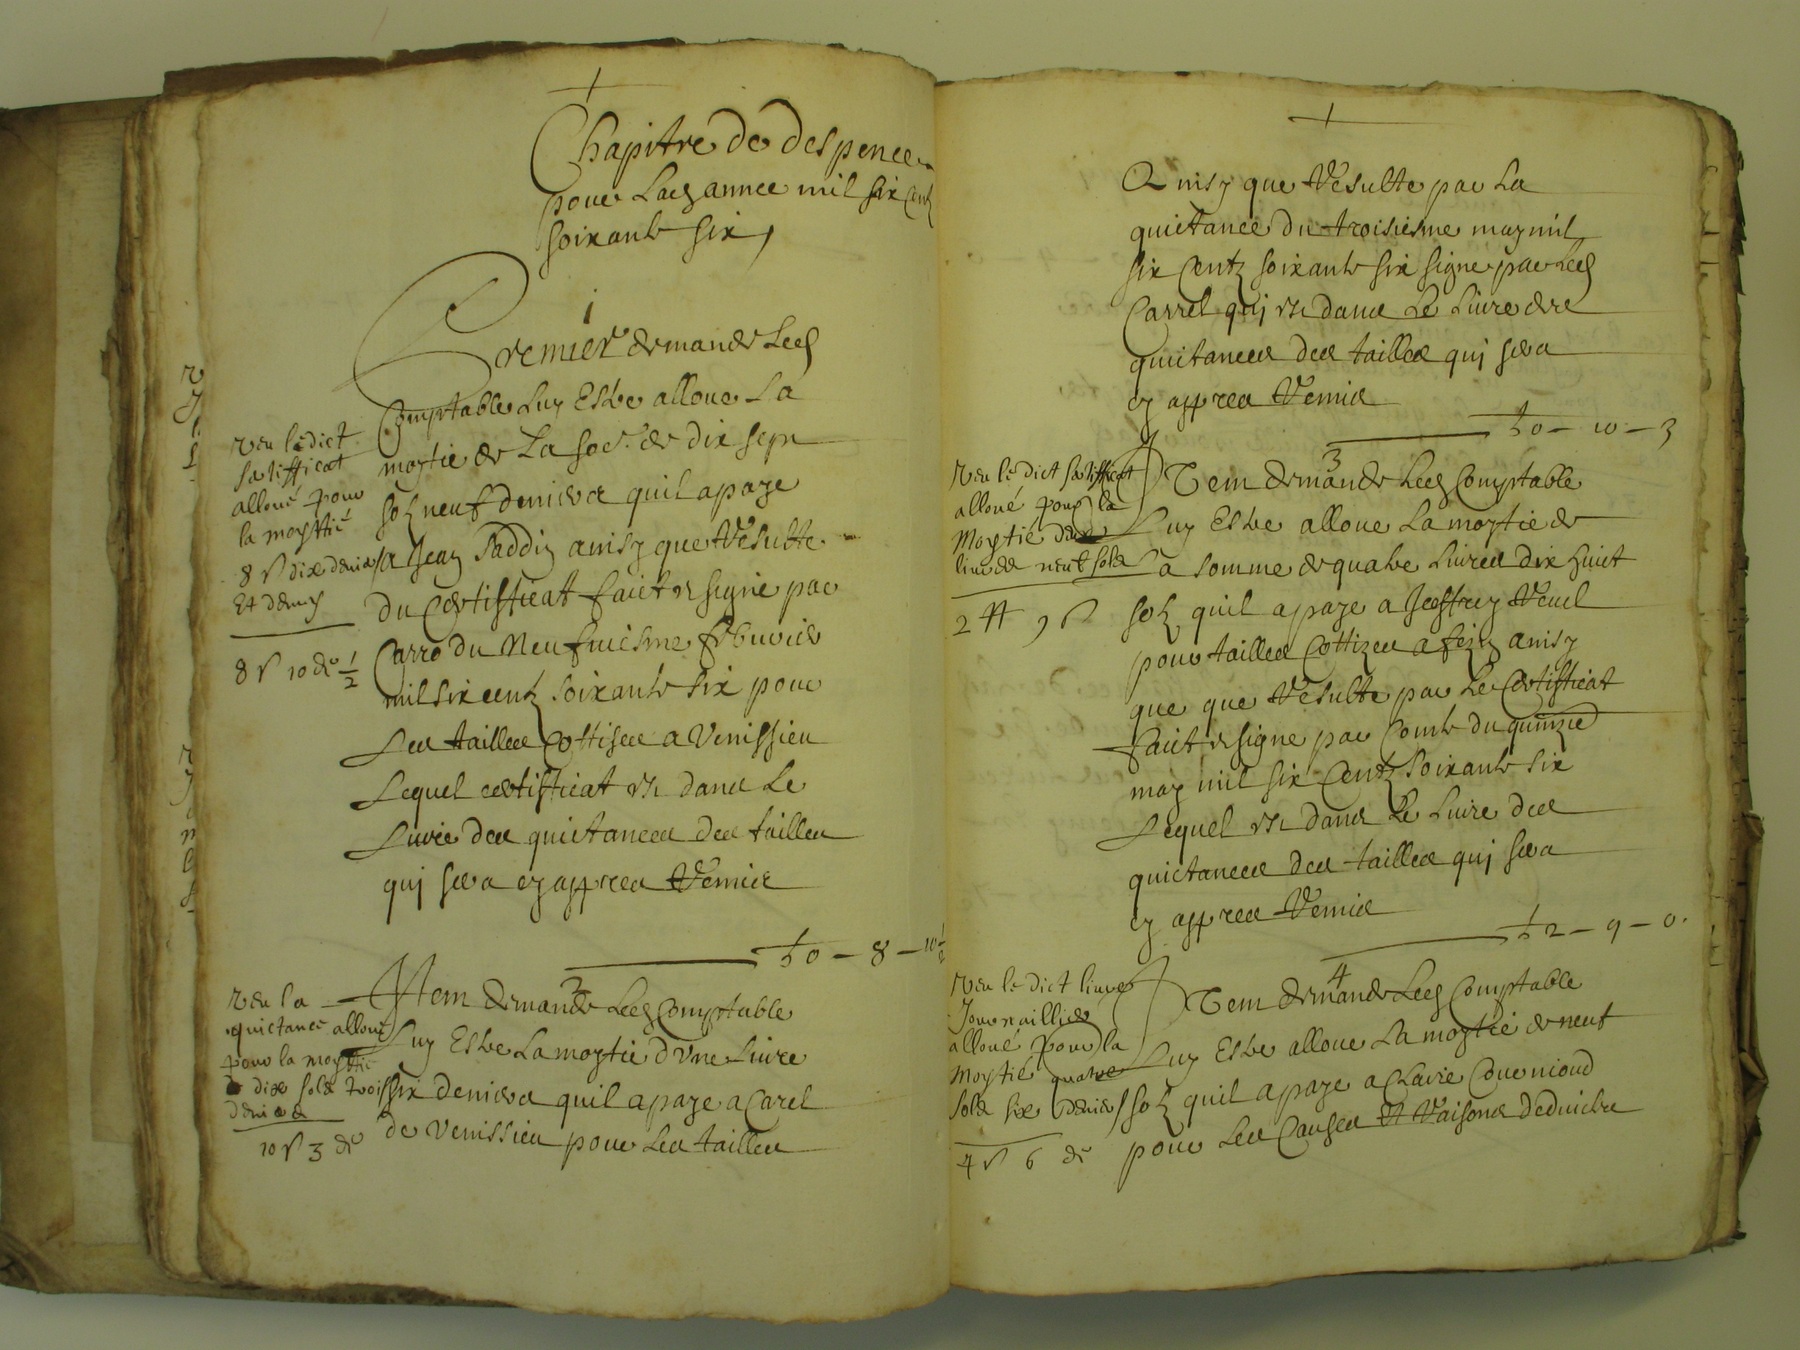 Chapitre de despence
pour Lad annee mil six centz
soixante six,
1
Premier demande Led
Comptable Luy Estre alloue La
moytie de La so.e de dix sept
solz neuf deniers quil a paye
a Jean Paddin ainsy que Resulte
du Certifficat faict et signe par
Carro du Neufuiesme febvrier
mil six centz soixante six pour
Les tailles Cottisea a Venissieu
Lequel certifficat est dans Le
Livre des quictances des tailles
qui sera cy appres Remis
₶ 0 - 8 - 10 1/2
veu le dict
sertifficat
alloué pour
la moyttié
8 s dix deniers
Et demy
8 s 10 d 1/2
2
Item demande Led Comptable
Luy Estre La moytie d'Une Livre
six deniers quil a paye a Carel
de Venissieu pour Les tailles
veu la
quictance alloué
pour la moyttié
dix solz trois
deniers
10 s 3 d
Ainsy que Resulte par La
quictance du troisiesme may mil
six Centz soixante six signe par Led
Carrel qui est dans Le Livre des
quictances des tailles qui sera
cy appres Remis
₶ 0 - 10 - 3
3
Item demande Led Comptable
Luy Estre alloue La moytie de
La somme de quatre Livres dix huict
solz quil a paye a Jeoffrey Revel
pour tailles Cottizea a fezin ainsy
que que Resulte par Le Certifficat
faict et signe par Comte du quinzie
may mil six Centz soixante six
Lequel est dans Le Livre des
quictances des tailles qui sera
cy appres Remis
₶ 2 - 9 - 0
Veu le dict sertifficat
alloué pour la
Moytié deux
livres neuf solz
2 ₶ 9 s
4
Item demande Led Comptable
Luy Estre alloue La moytie de neuf
solz quil a paye a Claire Couvrioud
pour Les Causes et Raisons deduictes
Veu le dict livre
Journaillier
alloué pour la
Moytié quatre
solz six deniers
4 s 6 d